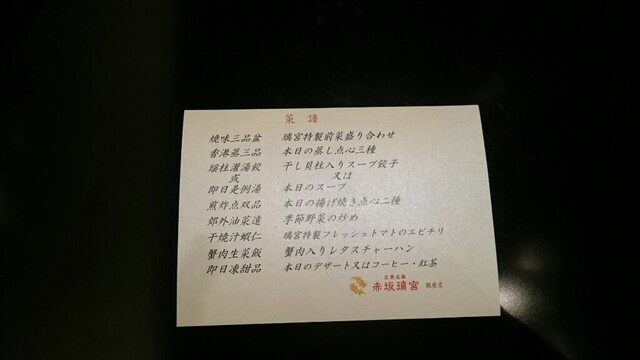 菜譜
燒味三品盆 璃宮特製前菜盛り合わせ
香港蒸三品 本日の蒸し点心三種
瑶柱灌湯餃 干し貝柱入りスープ餃子
或 又は
即日是例湯 本日のスープ
煎炸点双品 本日の揚げ焼き点心二種
郊外油菜遠 季節野菜の炒め
干燒汁蝦仁 璃宮特製フレッシュトマトのエビチリ
蟹肉生菜飯 蟹肉入りレタスチャーハン
即日凍甜品 本日のデザート又はコーヒー・紅茶
赤坂璃宮 銀座店